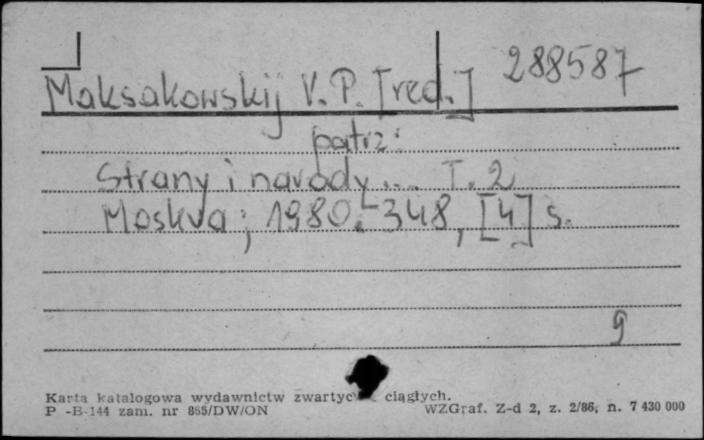 Maksakowskij V. P. [red.] 288587
patrz:
Strany i narody... T. 2
Moskva; 1980. - 348, [4] s.
g
Karta katalogowa wydawnictw zwartyc ciągłych.
P -B-144 zam. nr 865/DW/ON WZGraf. Z-d 2, z. 2/86, n. 7 430 000